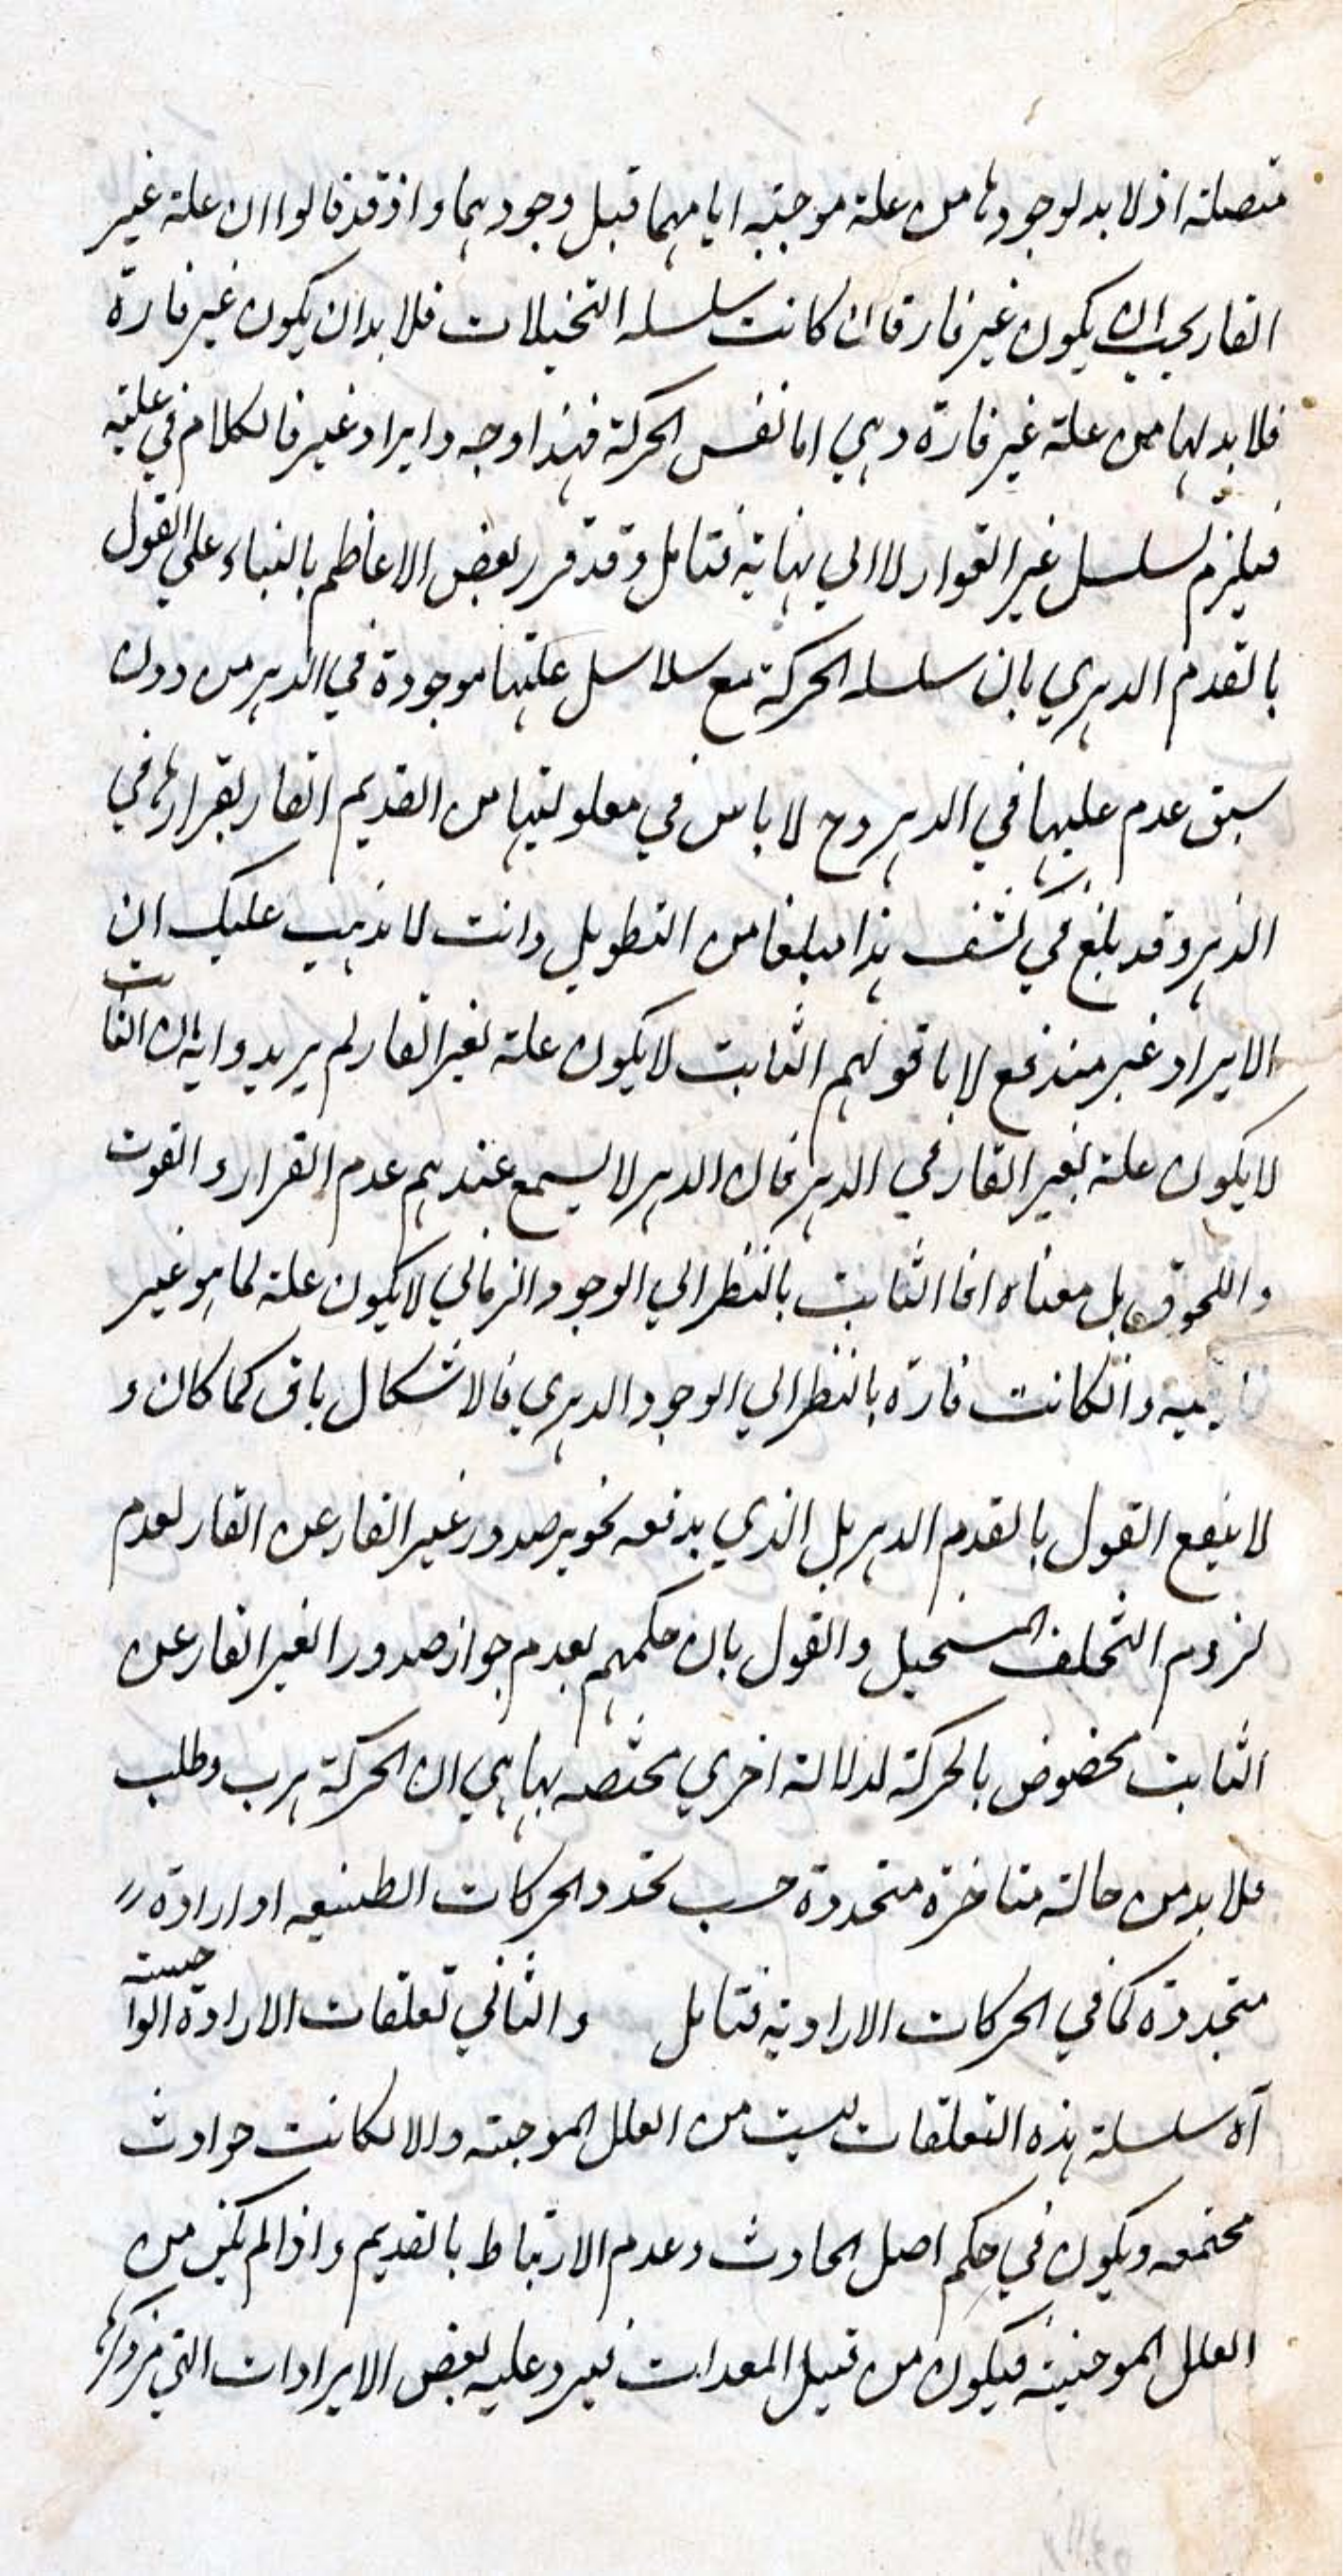 متصلة اذ لا بد لوجودها من علة موجبة اياهما قبل وجودهما واذ قد قالوا ان علة غير
القار يجب ان يكون غير قار فان كانت سلسله التخيلات فلا بد ان يكون غير قارة
فلا بد لها من علة غير قارة وهي اما نفس الحركة فهذا وجه وايراد غير فالكلام في علته
فيلزم تسلسل غير القوار لا الي نهاية فتامل وقد قرر بعض الاعاظم بالبناء علي القول
بالقدم الدهري بان سلسله الحركة مع سلاسل علتها موجودة في الدهر من دون
سبق عدم عليها في الدهر وح لا باس في معلوليتها من القديم القار بقرارها في
الدهر وقد بلغ في كشف هذا مبلغا من التطويل وانت لا يذهب عليك ان
الايراد غير مندفع لا با قولهم الثابت لا يكون علة لغير القار لم يريدوا به ان الثابت
لا يكون علة لغير القار في الدهر فان الدهر لا يسمع عندهم عدم القرار والفوت
واللحوق بل معناه ان الثابت بالنظر الي الوجود الزماني لا يكون علة لما هو غير
وانكانت قارة بالنظر الي الوجود الدهري فالاشكال باق كما كان و
لا ينفع القول بالقدم الدهر بل الذي يدفعه تجويز صدور غير القار عن القار لعدم
لزوم التخلف المستحيل والقول بان حكمهم بعدم جواز صدور الغير القار عن
الثابت مخصوص بالحركة لدلالة اخري مختصه بها هي ان الحركة هرب وطلب
فلا بد من حالة متاخرة متجددة حسب تجدد الحركات الطبيعه او ارادة
متجددة كما في الحركات الارادية فتامل والثاني تعلقات الارادة الواجبية
آه سلسلة هذه التعلقات ليست من العلل الموجبة والا لكانت حوادث
مجتمعه ويكون في حكم اصل الحادث وعدم الارتباط بالقديم واذا لم يكن من
العلل الموجبة فيكون من قبيل المعدات فيرد عليه بعض الايرادات التي مر ذكرها